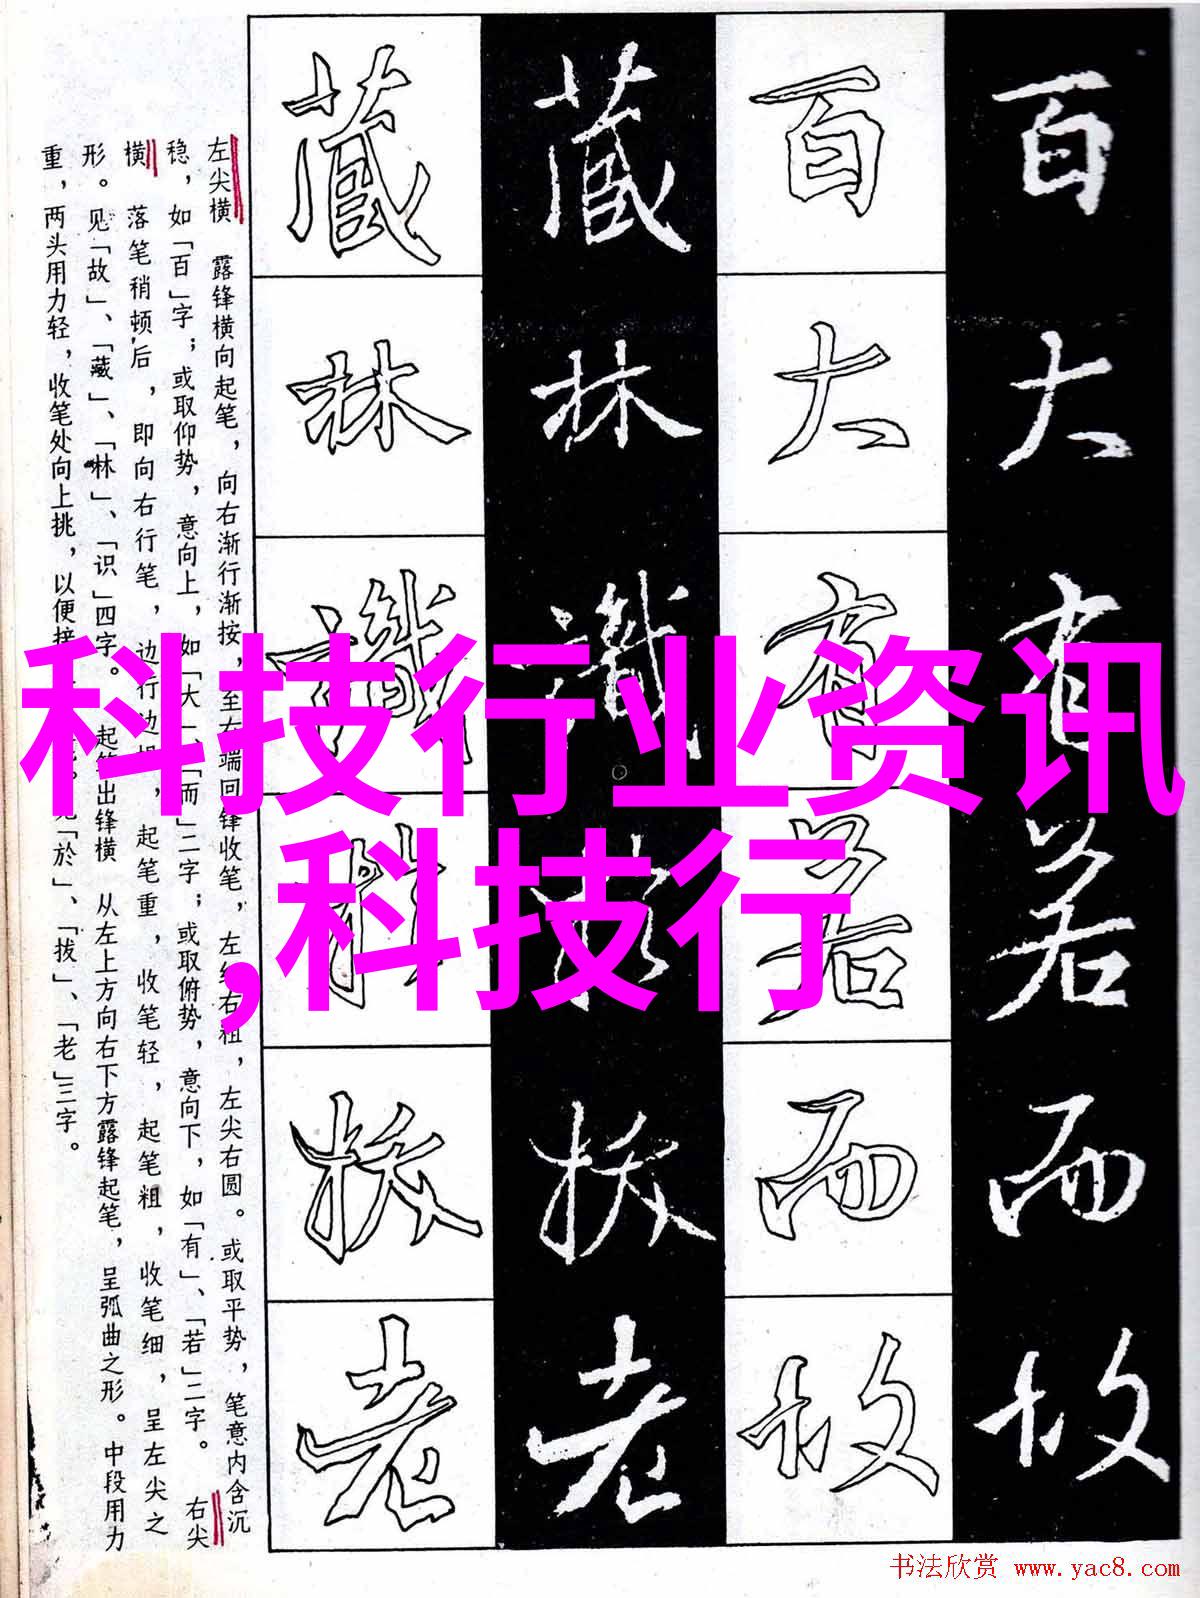 左尖横　露锋横向起笔，向右渐行渐按，至右端回锋收笔，左细右粗，左尖右圆。或取平势，笔意内含沉
稳，如「百」字；或取仰势，意向上，如「大」、「而」二字；或取俯势，意向下，如「有」、「若」二字。　右尖
横　落笔稍顿后，即向右行笔，边行边提，起笔重，收笔轻，起笔粗，收笔细，呈左尖之
形。见「故」、「藏」、「林」、「识」四字。　起笔出锋横　从左上方向右下方露锋起笔，呈弧曲之形。中段用力
重，两头用力轻，收笔处向上挑，以便接 「於」、「拔」、「老」三字。
百 大 有 若 而 故
百 大 有 若 而 故
藏 林 識 於 拔 老
藏 林 識 於 拔 老
科技行业资讯
,科技行
书法欣赏 www.yac8.com